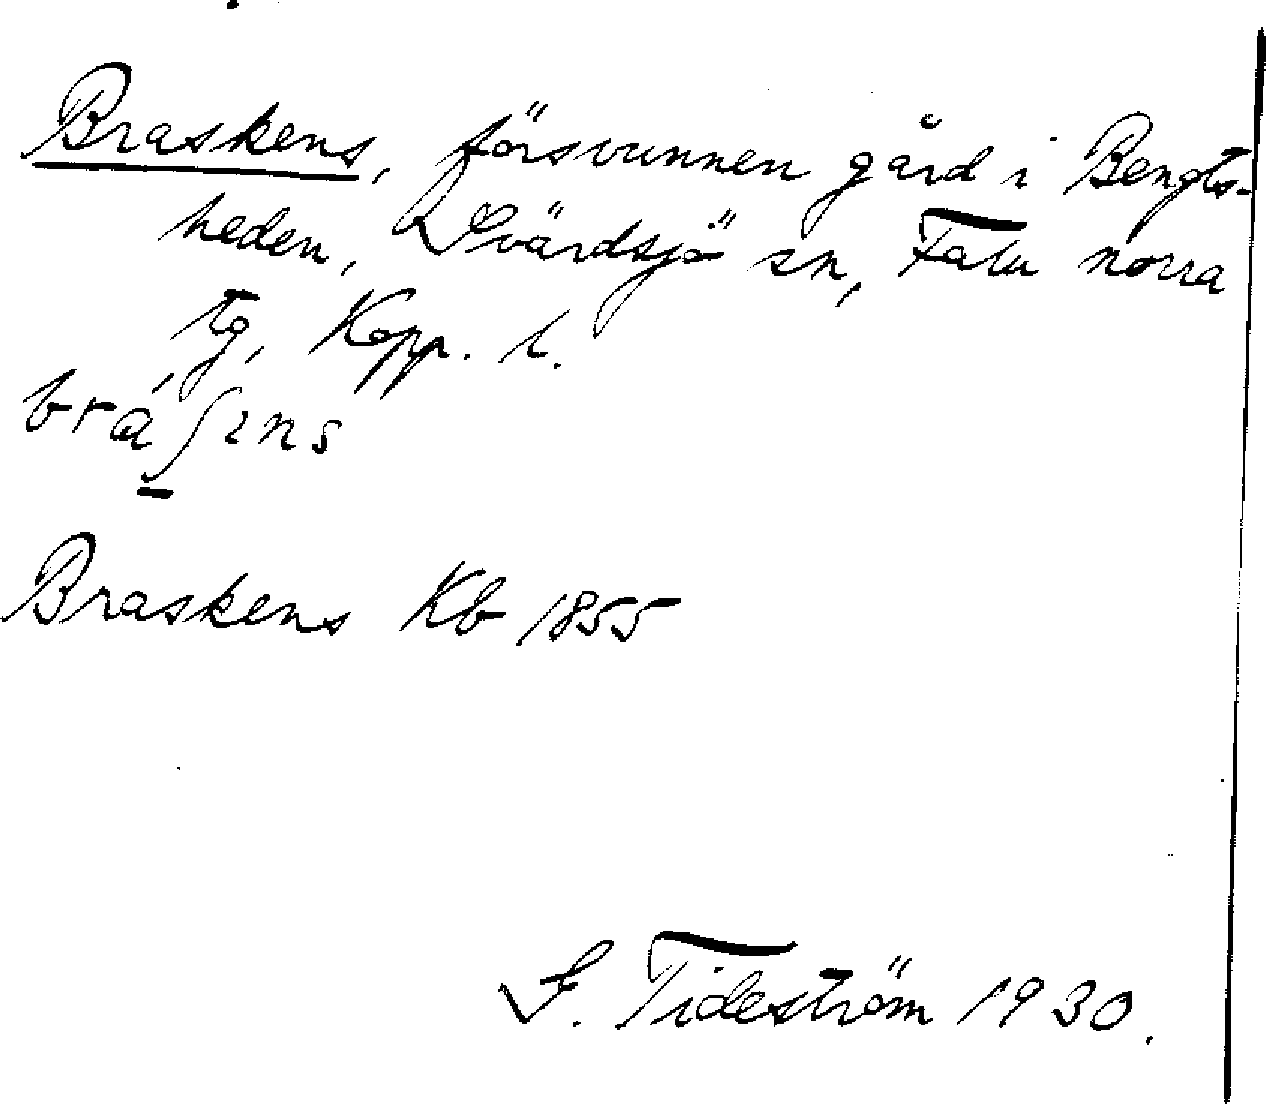 Braskens, försvunnen gård i Bengts-
heden, Svärdsjö sn, Falu norra
tg, Kopp. l.
Braskens Kb 1855
S. Tideström 1930.